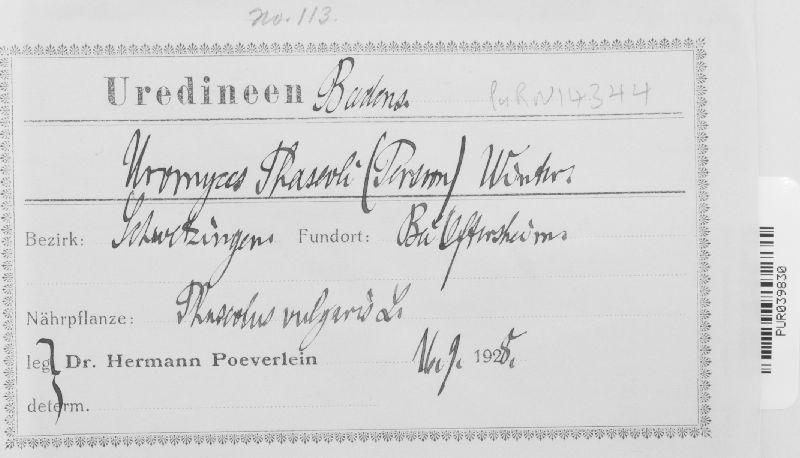 No. 113.
Uredineen Badens.
PurN14344
Uromyces Phaseoli (Persoon) Winter.
Bezirk: Schwetzingen. Fundort: Bei Oftersheim.
Nährpflanze: Phaseolus vulgaris L.
leg. Dr. Hermann Poeverlein 16. 9. 1925.
determ.
PUR039830